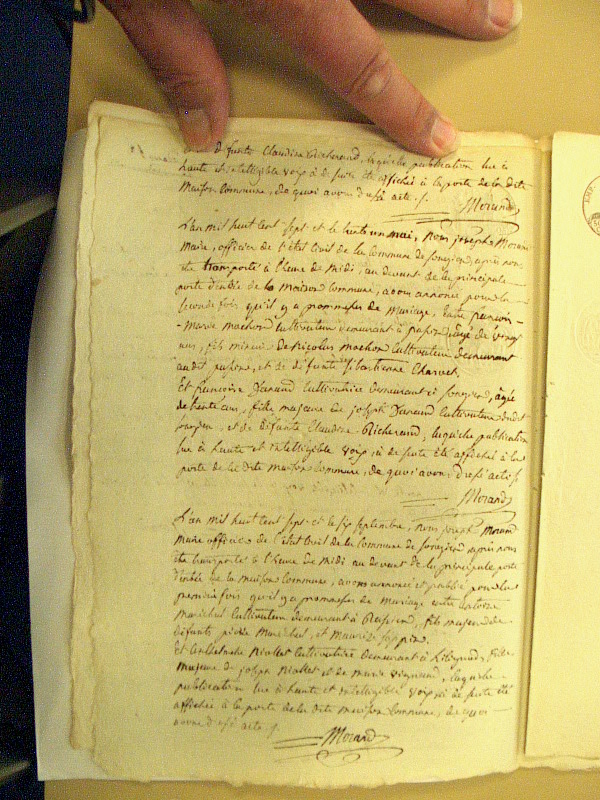 de défunte Claudine Richerand, laquelle publication lue à
haute et intelligible voix a de suite été affichée à la porte de la dite
Maison Commune, de quoi avons dressé acte.
Morand
L'an mil huit cent sept et le trente un mai, nous joseph Morand
Maire, officier de l'état Civil de la Commune de songieu, après nous
être transporté à l'heure de Midi, au devant de la principale
porte d'entrée de la Maison Commune, avons annoncé pour la
seconde fois qu'il y a promesses de Mariage, Entre
Marie machon Cultivateur demeurant à agé de vingt
ans, fils mineur de Nicolas machon Cultivateur demeurant
audit et de défunte Charvet,
Et françoise Cultivatrice demeurant à songieu, agée
de trente ans, fille majeure de joseph Cultivateur audit
songieu, et de défunte Claudine Richerand, laquelle publication
lue à haute et intelligible voix, a de suite été affichée à la
porte de la dite maison Commune, de quoi avons dressé acte
Morand
L'an mil huit cent sept et le six septembre, nous joseph Morand
maire officier de l'état Civil de la Commune de songieu après nous
être transporté à l'heure de Midi au devant de la principale porte
d'entrée de la maison Commune, avons annoncé et publié pour la
première fois qu'il y a promesses de Mariage entre
Maréchal Cultivateur demeurant à fils majeur de
défunts pierre Maréchal, et
Et Cultivatrice demeurant à fille
majeure de joseph et de marie laquelle
publication lue à haute et intelligible voix a de suite été
affichée à la porte de la dite maison Commune, de quoi
avons dressé acte
Morand